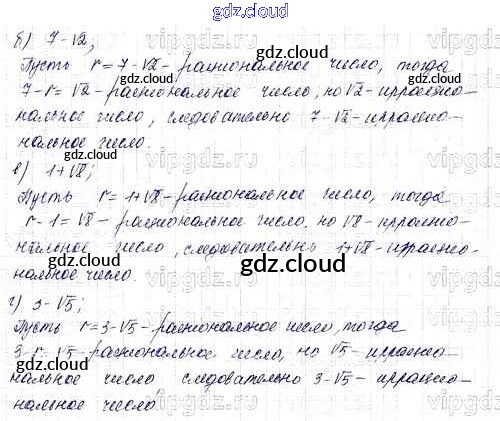 gdz.cloud
б) 7-√2;
Пусть r = 7-√2 - рациональное число, тогда
7-r = √2 - рациональное число, но √2 - иррацио-
нальное число, следовательно 7-√2 - иррацио-
нальное число.
в) 1+√8;
Пусть r = 1+√8 - рациональное число, тогда
r-1 = √8 - рациональное число, но √8 - иррацио-
нальное число, следовательно 1+√8 - иррацио-
нальное число.
gdz.cloud
г) 3-√5;
Пусть r = 3-√5 - рациональное число, тогда
3-r = √5 - рациональное число, но √5 - иррацио-
нальное число, следовательно 3-√5 - иррацио-
нальное число.